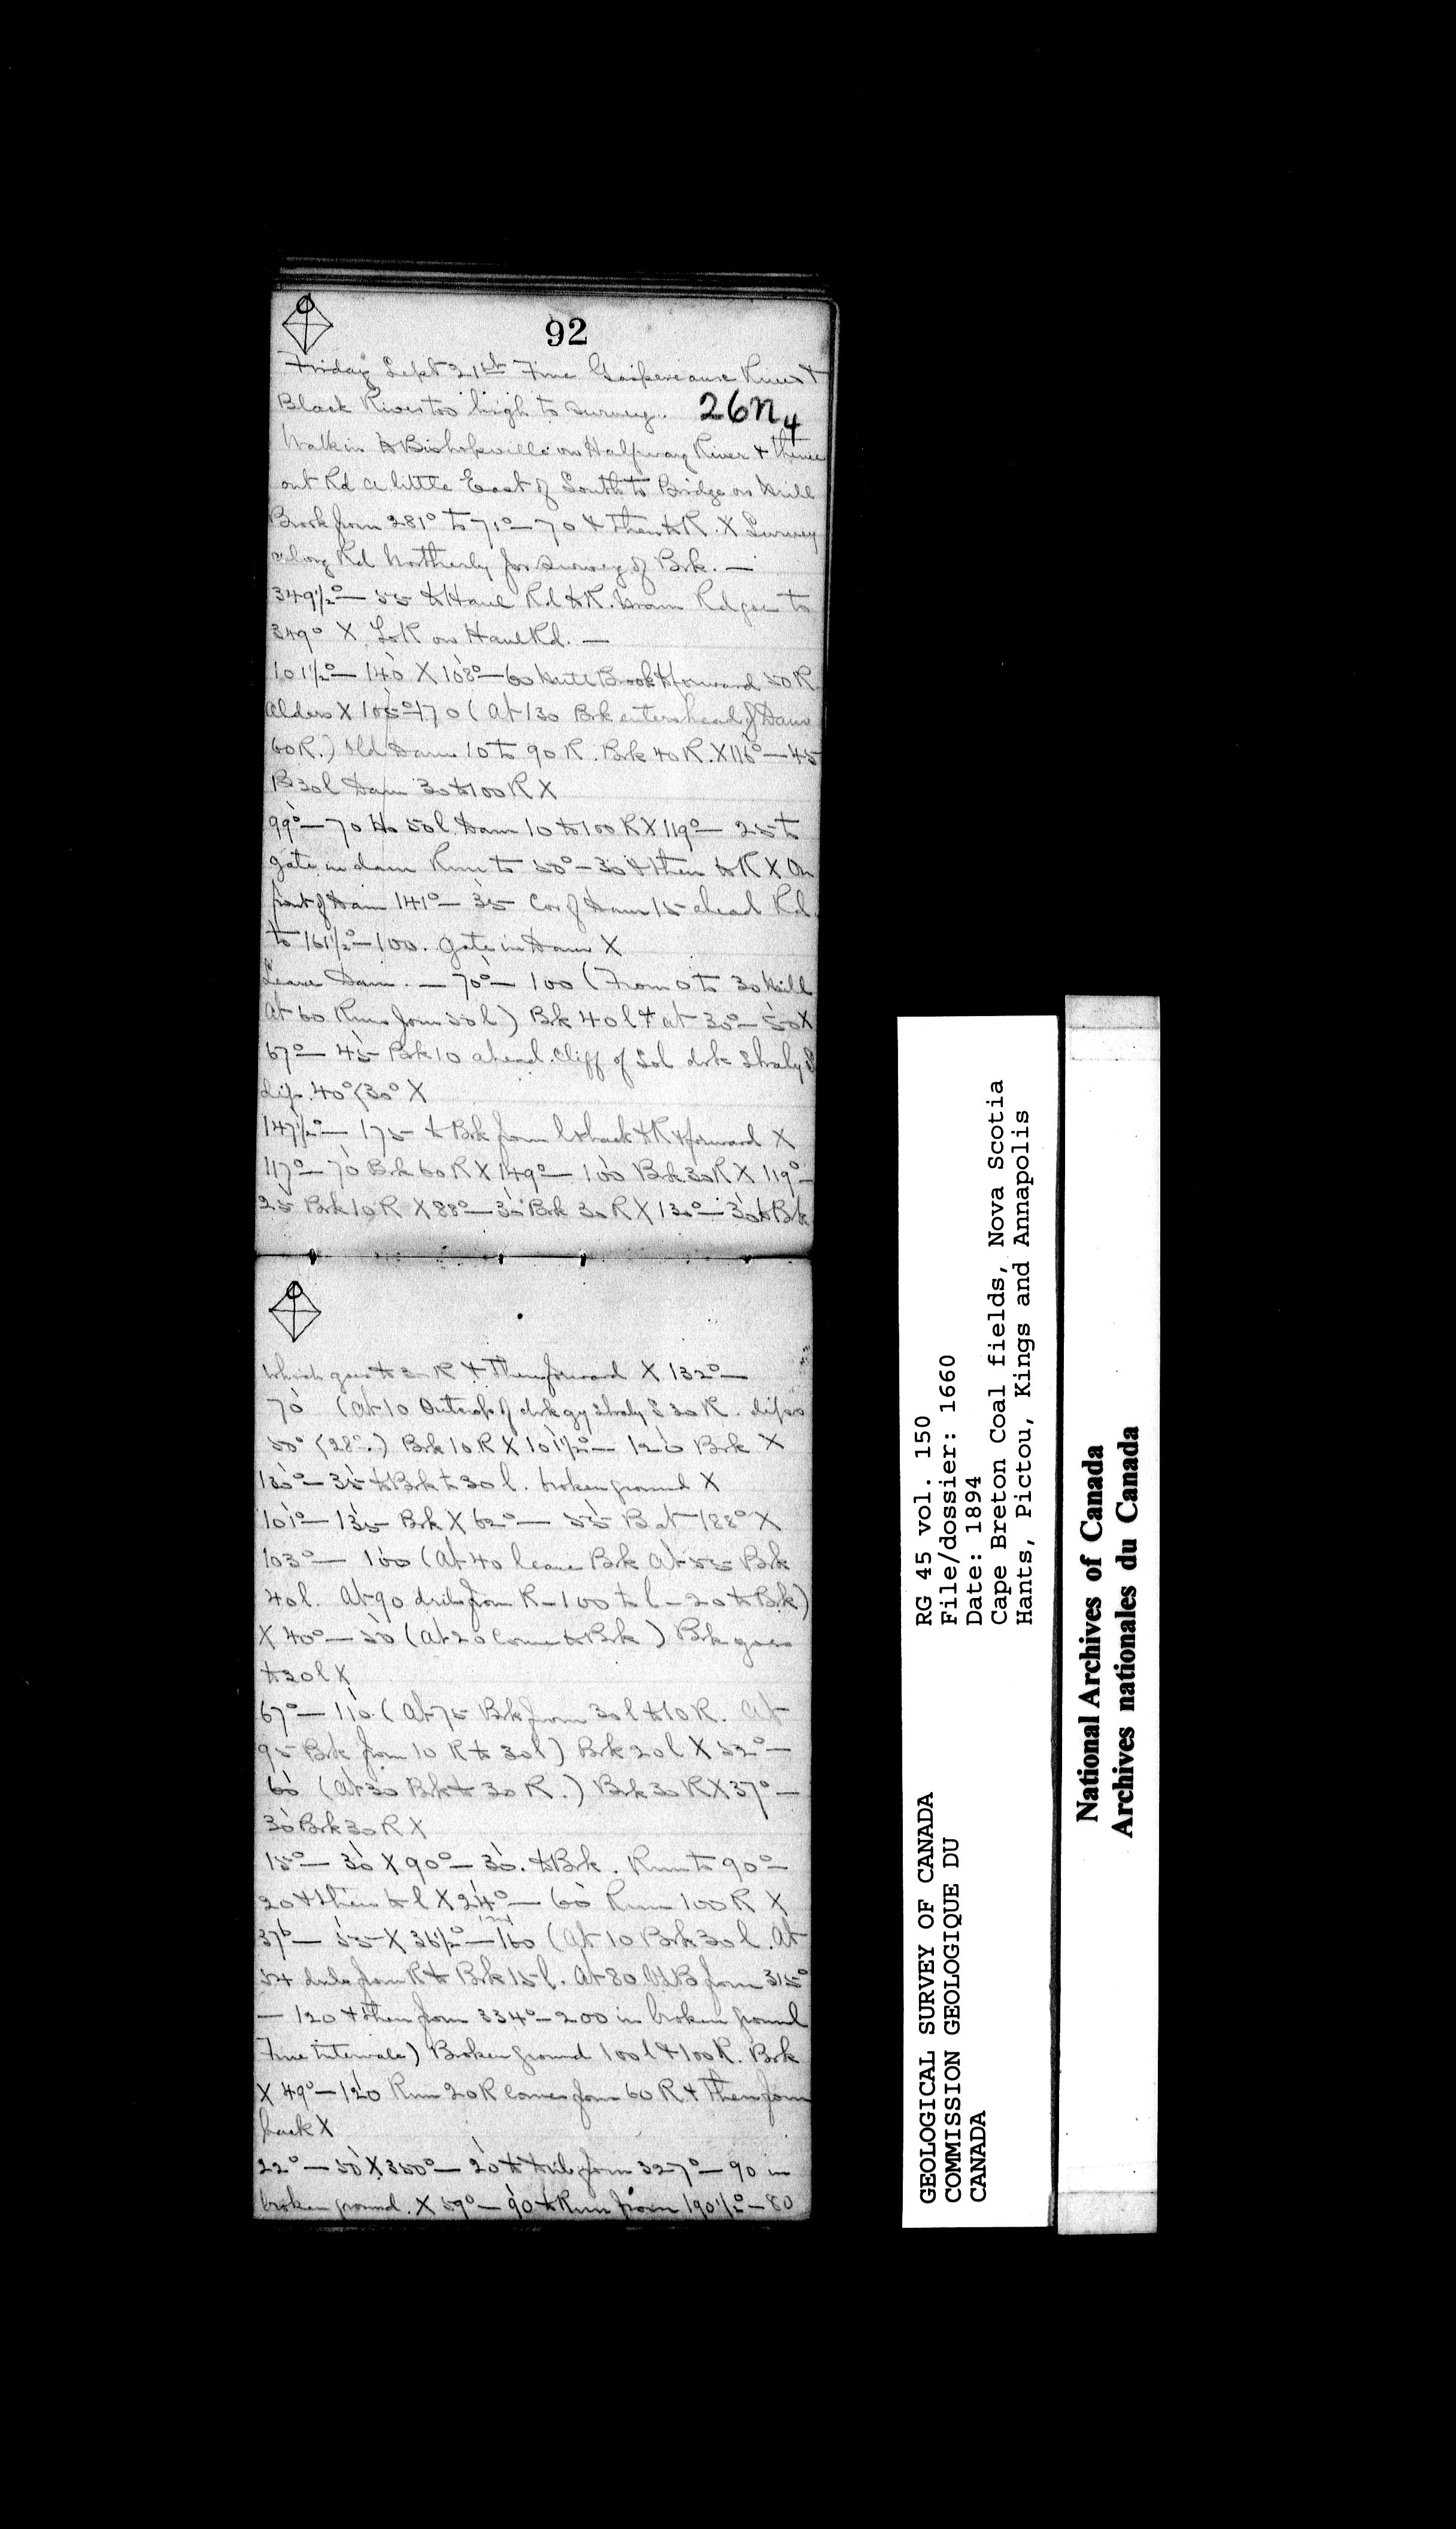 92
26n4
Friday Sept 21st Fine Gaspereaux River &
Black River too high to survey.
Walk in to Bishopville on Halfway River & thence
out Rd a little East of South to Bridge on Mill
Brook from 281° to 71° — 70 & then to R. X Survey
along Rd Northerly for survey of Brk. —
349½° — 55 to Haul Rd to R. Main Rd goes to
349° X to R on Haul Rd. —
101½° — 140 X 108° — 60 Mill Brook & forward 50 R
Alders X 105° — 170 (At 130 Brk enters head of Dam
60 R.) Old Dam 10 to 90 R. Brk 40 R. X 116° — 45
B 30 l Dam 30 to 100 R X
99° — 70 Ho 50 l. Dam 10 to 100 R X 119° — 25 to
gate in dam Runs to 50° — 30 & then to R X On
front of Dam 141° — 35 Cor of Dam 15 ahead Rd
to 161½° — 100. Gate in Dam X
Leave Dam. — 70° — 100 (From 0 to 30 Mill
At 60 Runs from 50 l) Bk 40 l & at 35° — 50 X
67° — 45 Brk 10 ahead. Cliff of Sol drk Shaly S
dip. 40° (30° X
147½° — 175 to Brk from l & back to R & forward X
117° — 70 Brk 60 R X 149° — 100 Brk 30 R X 119° —
25 Brk 10 R X 88° — 35 Brk 30 R X 130° — 30 to Brk
which goes to R & then forward X 132° —
70 (At 10 Outcrop of drk gy shaly S 30 R. dips
50° (28°.) Brk 10 R X 101½° — 120 Brk X
130° — 35 to Brk to 30 l. broken ground X
101° — 135 Brk X 62° — 55 B at 188° X
103° — 100 (At 40 leave Brk At 55 Brk
40 l. At 90 drib from R — 100 to l — 20 to Brk)
X 40° — 50 (At 20 come to Brk) Brk goes
to 20 l X
67° — 110. (At 75 Brk from 30 l to 10 R. At
95 Brk from 10 R to 30 l) Brk 20 l X 52° —
60 (At 30 Brk to 30 R.) Brk 30 R X 37° —
30 Brk 30 R X
15° — 30 X 90° — 30. to Brk. Run to 90° —
20 & then to l X 24° — 60 Run 100 R X
37° — 55 X 36½° — 160 (At 10 Brk 30 l. At
54 drib from R to Brk 15 l. At 80 Old B from 315°
— 120 & then from 334° — 200 in broken ground
Fine Intervale) Broken ground 100 l & 100 R. Brk
X 49° — 120 Run 20 R comes from 60 R & then from
back X
22° — 50 X 350° — 20 to drib from 327° — 90 in
broken ground. X 59° — 90 to Run from 190½° — 80
GEOLOGICAL SURVEY OF CANADA
COMMISSION GEOLOGIQUE DU
CANADA
RG 45 vol. 150
File/dossier: 1660
Date: 1894
Cape Breton Coal fields, Nova Scotia
Hants, Pictou, Kings and Annapolis
National Archives of Canada
Archives nationales du Canada